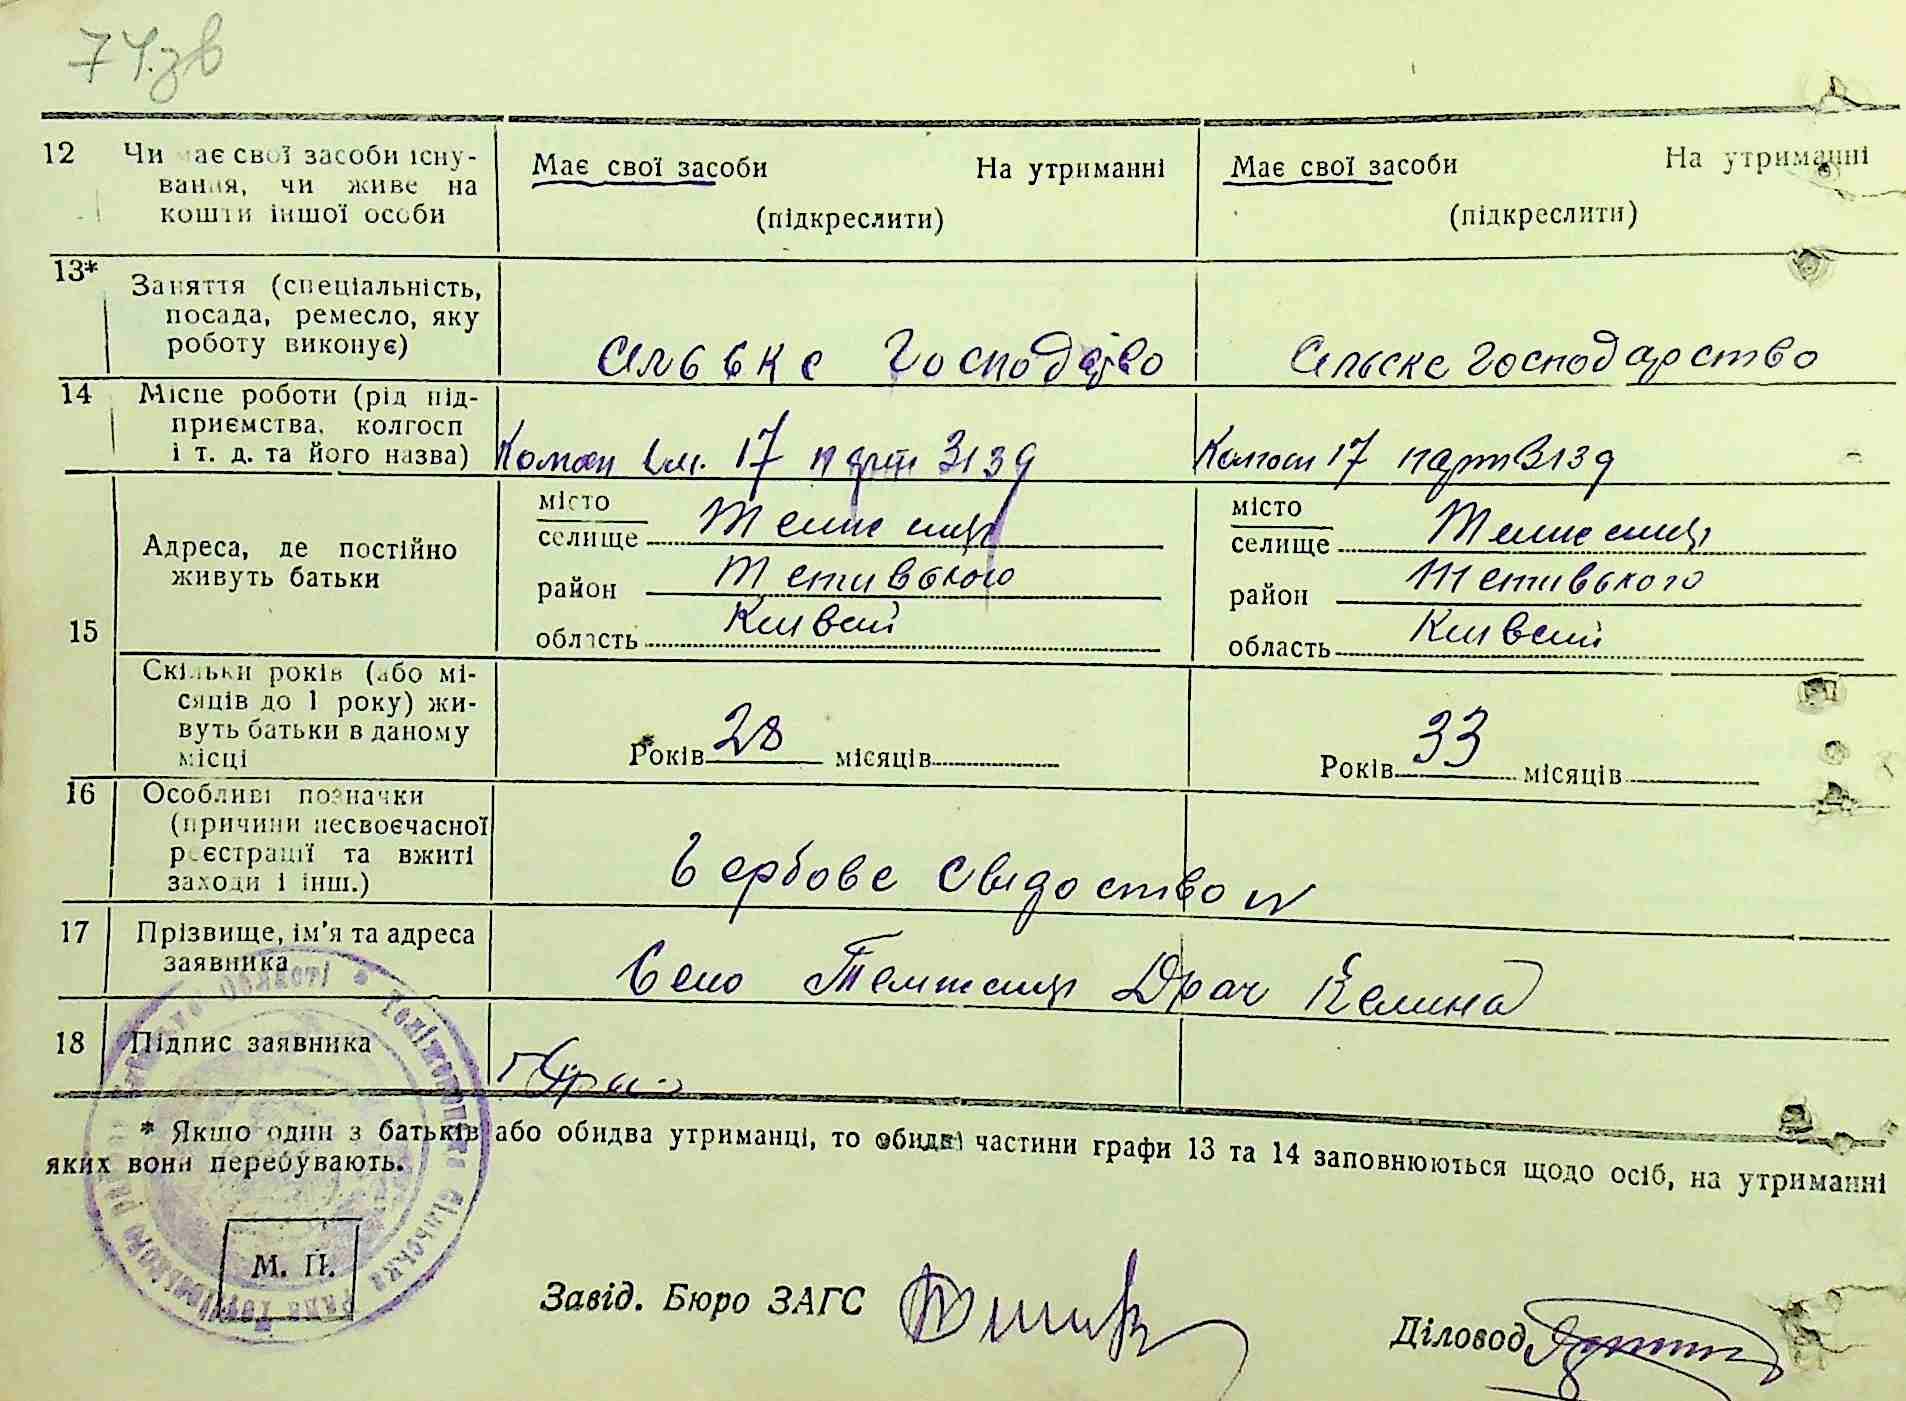 74.зв
12 Чи має свої засоби існу-
вання, чи живе на
кошти іншої особи
Має свої засоби На утриманні
(підкреслити)
Має свої засоби На утриманні
(підкреслити)
13* Заняття (спеціальність,
посада, ремесло, яку
роботу виконує)
Сільське Господарво
Сільске господарство
14 Місце роботи (рід під-
приємства, колгосп
і т. д. та його назва)
ім. 17 парт Зізд
17 парт Зізд
15 Адреса, де постійно
живуть батьки
місто
селище
район Тетивського
область Київсій
місто
селище
район Тетивського
область Київсій
Скільки років (або мі-
сяців до 1 року) жи-
вуть батьки в даному
місці
Років 28 місяців
Років 33 місяців
16 Особливі позначки
(причини несвоєчасної
реєстрації та вжиті
заходи і інш.)
17 Прізвище, ім'я та адреса
заявника
Село Драч
18 Підпис заявника
* Якшо один з батьків або обидва утриманці, то обидві частини графи 13 та 14 заповнюються щодо осіб, на утриманні
яких вони перебувають.
М. П.
Завід. Бюро ЗАГС
Діловод